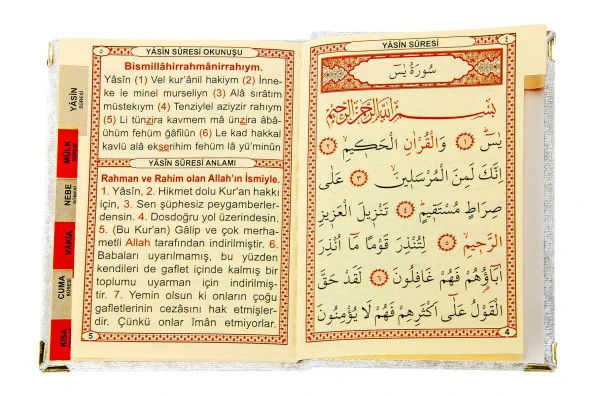 ٤
YÂSİN SÛRESİ
سُورَةُ يٰسٓ
بِسْمِ اللّٰهِ الرَّحْمٰنِ الرَّحِيمِ
يٰسٓ ﴿١﴾ وَالْقُرْاٰنِ الْحَك۪يمِ ﴿٢﴾
اِنَّكَ لَمِنَ الْمُرْسَل۪ينَ ﴿٣﴾ عَلٰى
صِرَاطٍ مُسْتَق۪يمٍ ﴿٤﴾ تَنْز۪يلَ الْعَز۪يزِ
الرَّح۪يمِ ﴿٥﴾ لِتُنْذِرَ قَوْمًا مَٓا اُنْذِرَ
اٰبَٓاؤُ۬هُمْ فَهُمْ غَافِلُونَ ﴿٦﴾ لَقَدْ حَقَّ
الْقَوْلُ عَلٰٓى اَكْثَرِهِمْ فَهُمْ لَا يُؤْمِنُونَ
4
٥
YÂSİN SÛRESİ OKUNUŞU
Bismillâhirrahmânirrahıym.
Yâsîn (1) Vel kur'ânil hakiym (2) İnne-
ke le minel murseliyn (3) Alâ sırâtım
müstekıym (4) Tenziylel aziyzir rahıym
(5) Li tünzira kavmem mâ ünzira âbâ-
ühüm fehüm ğâfilûn (6) Le kad hakkal
kavlü alâ ekserihim fehüm lâ yü'minûn
YÂSİN SÛRESİ ANLAMI
Rahman ve Rahim olan Allah'ın İsmiyle.
1. Yâsîn, 2. Hikmet dolu Kur'an hakkı
için, 3. Sen şüphesiz peygamberler-
densin. 4. Dosdoğru yol üzerindesin.
5. (Bu Kur'an) Gâlip ve çok merha-
metli Allah tarafından indirilmiştir. 6.
Babaları uyarılmamış, bu yüzden
kendileri de gaflet içinde kalmış bir
toplumu uyarman için indirilmiş-
tir. 7. Yemin olsun ki onların çoğu
gafletlerinin cezasını hak etmişler-
dir. Çünkü onlar îmân etmiyorlar.
5
YÂSİN
SÛRESİ
MÜLK
SÛRESİ
NEBE
SÛRESİ
VÂKIA
CUMA
SÛRESİ
KISA